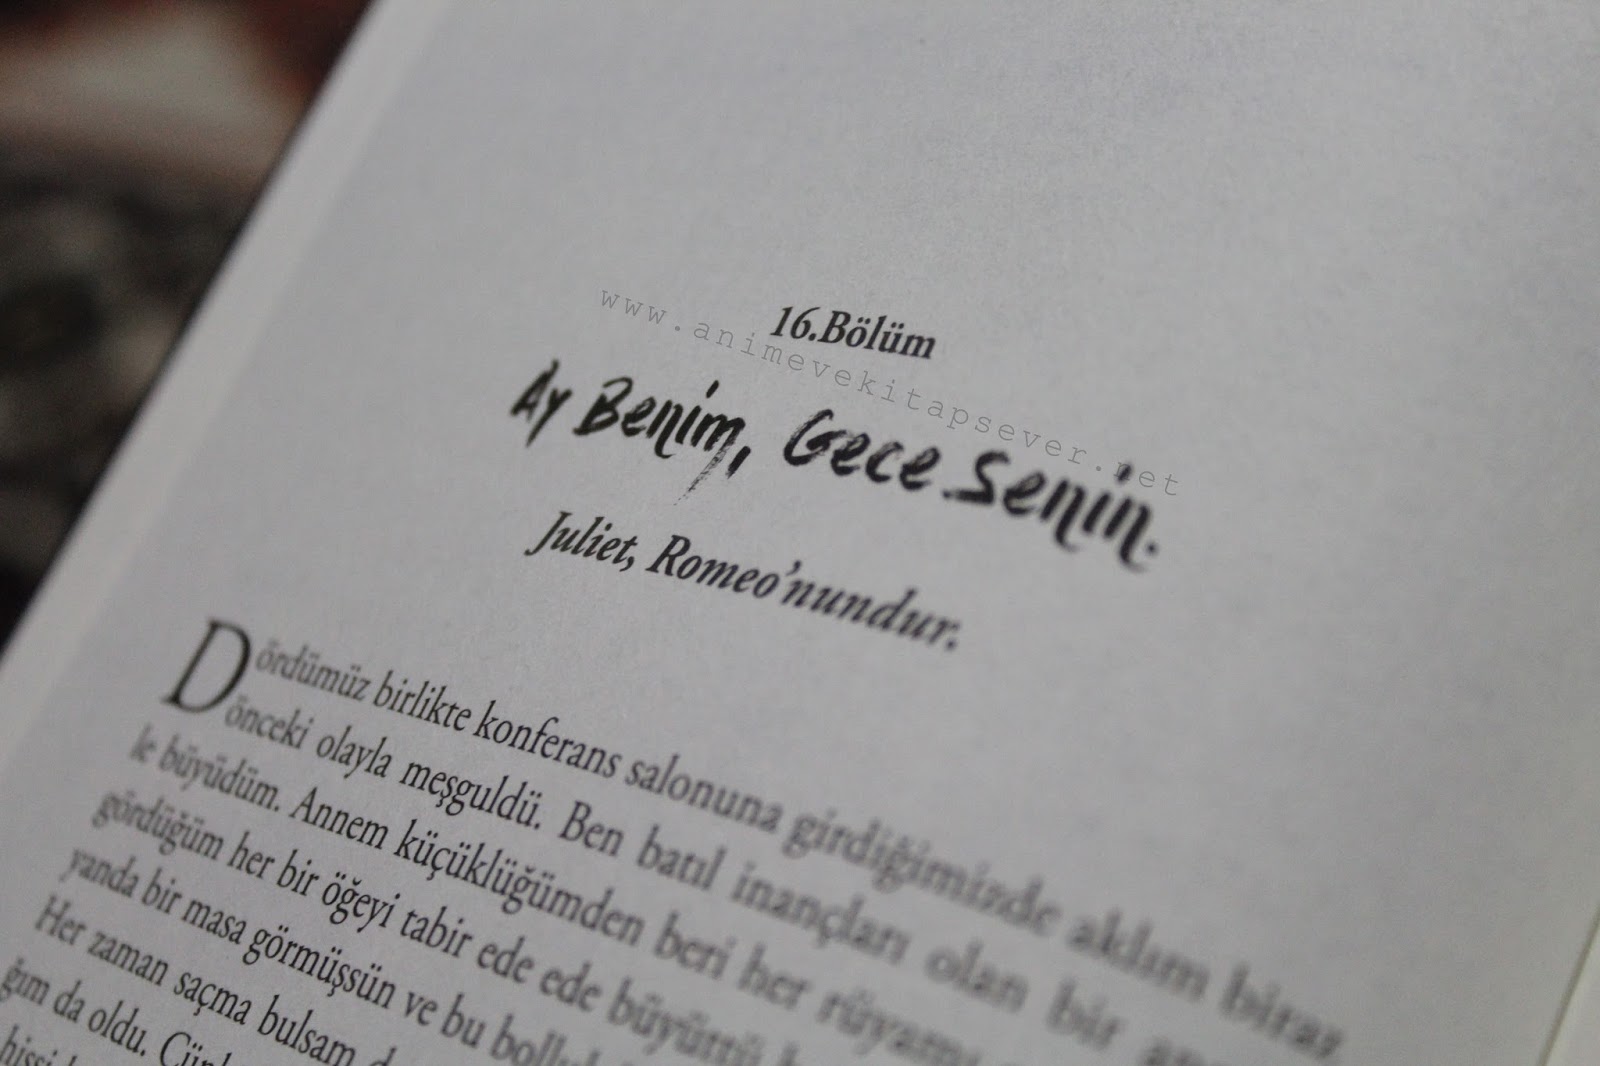 16.Bölüm
www.animevekitapsever.net
Ay Benim, Gece Senin.
Juliet, Romeo'nundur.
Dördümüz birlikte konferans salonuna girdiğimizde aklım biraz
önceki olayla meşguldü. Ben batıl inançları olan bir
le büyüdüm. Annem küçüklüğümden beri her rüyamı
gördüğüm her bir öğeyi tabir ede ede büyüttü
yanda bir masa görmüşsün ve bu
Her zaman saçma bulsam
ğım da oldu.